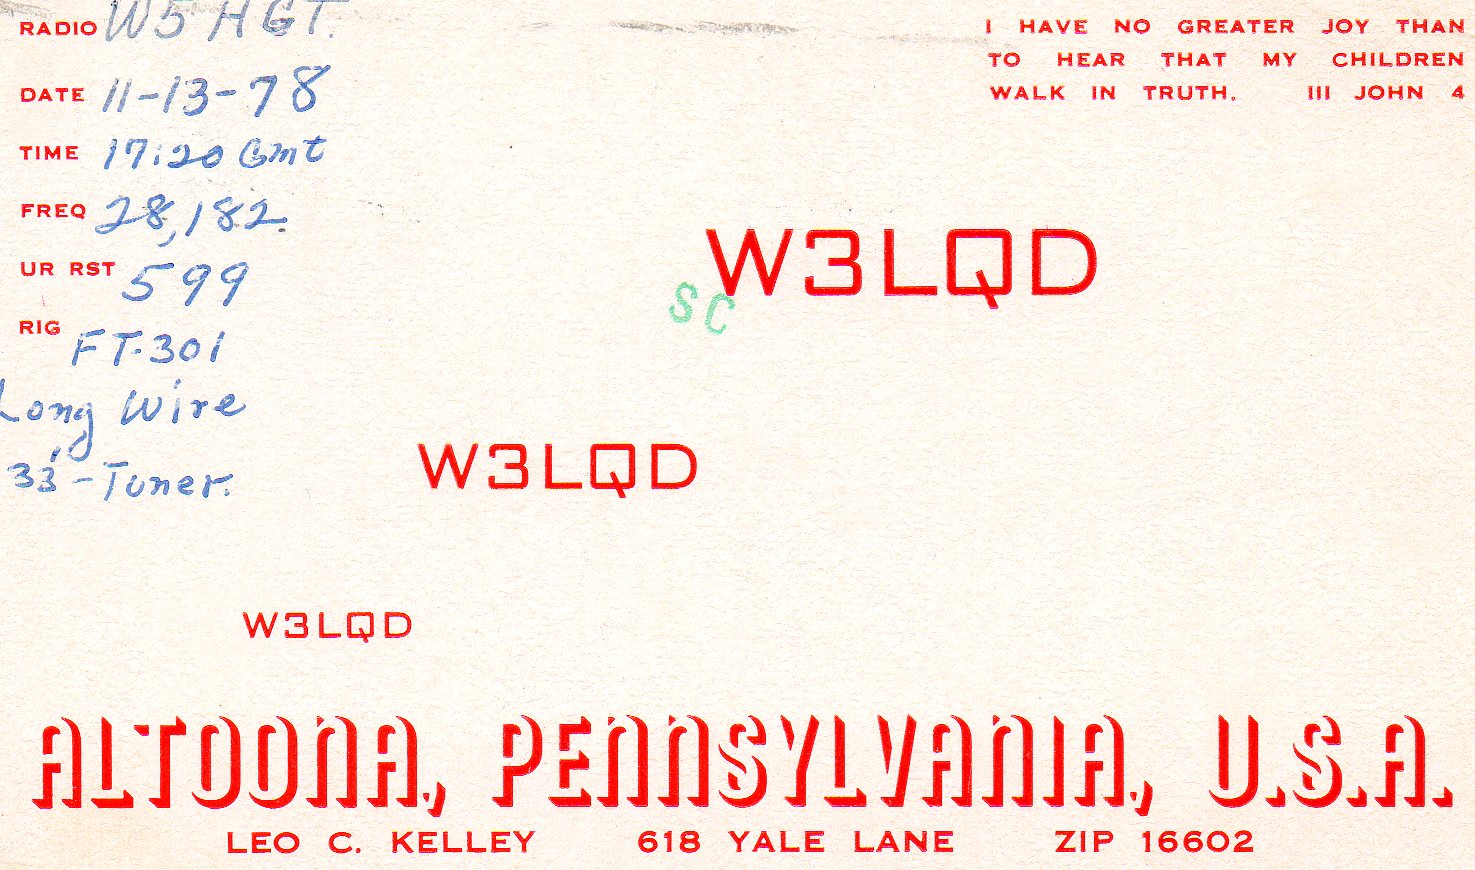 RADIO W5HGT.
DATE 11-13-78
TIME 17:20 Gmt
FREQ 28,182.
UR RST 599
RIG FT-301
Long Wire
33'-Tuner.
I HAVE NO GREATER JOY THAN
TO HEAR THAT MY CHILDREN
WALK IN TRUTH. III JOHN 4
W3LQD
SC
W3LQD
W3LQD
ALTOONA, PENNSYLVANIA, U.S.A.
LEO C. KELLEY 618 YALE LANE ZIP 16602